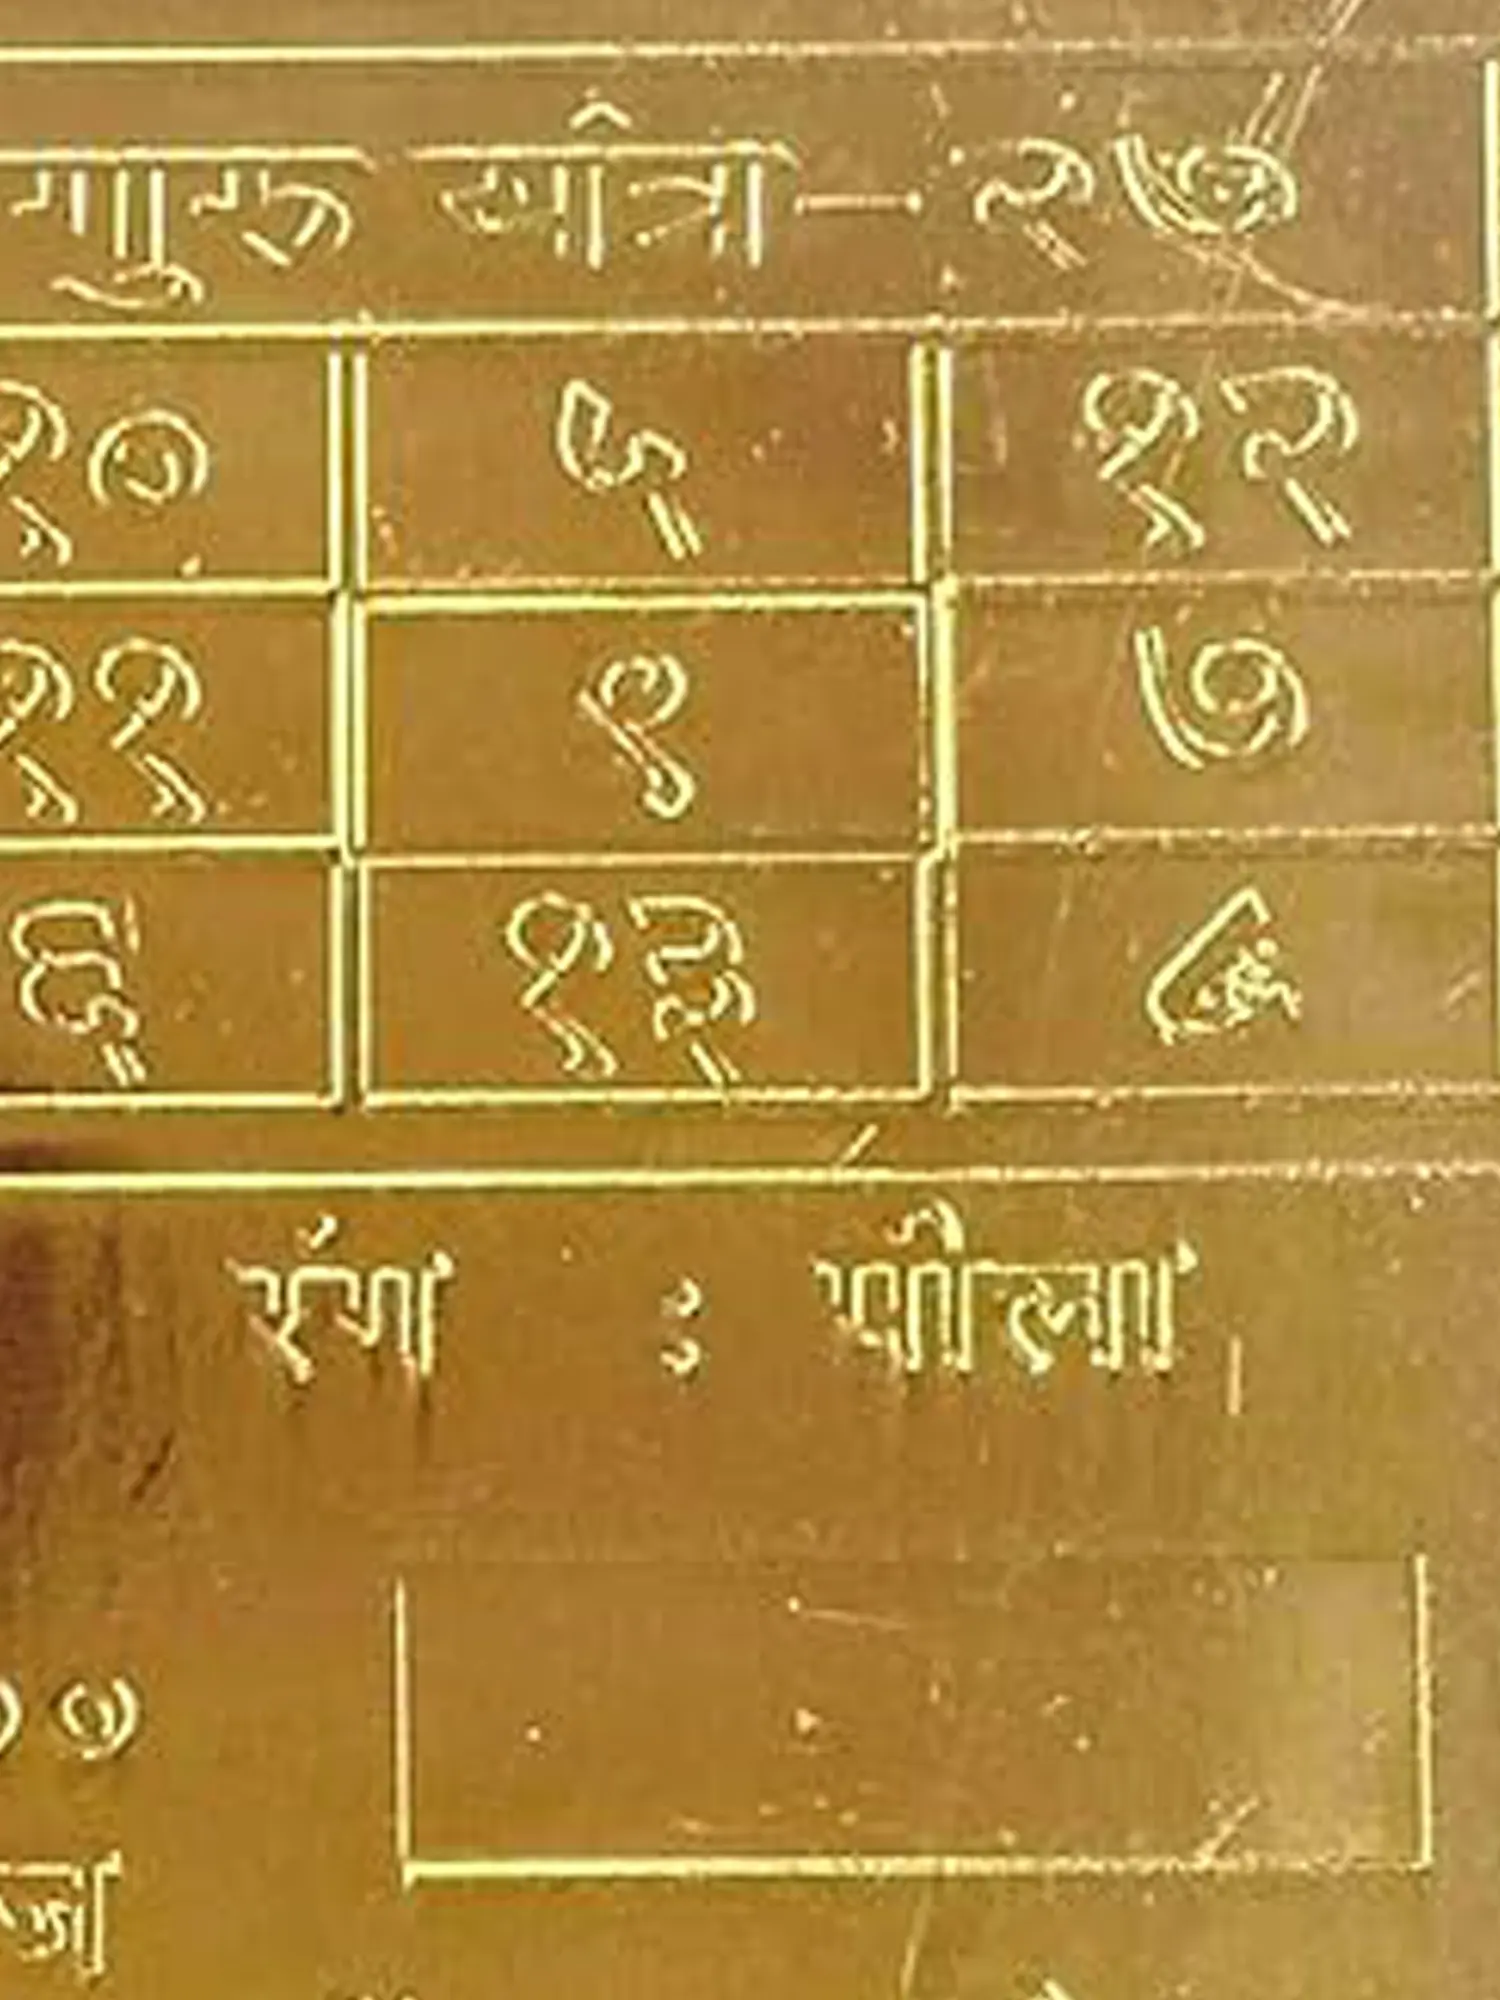 गुरु यंत्र — २७
१० ५ १२
११ ९ ७
६ १३ ८
रंग : पीला